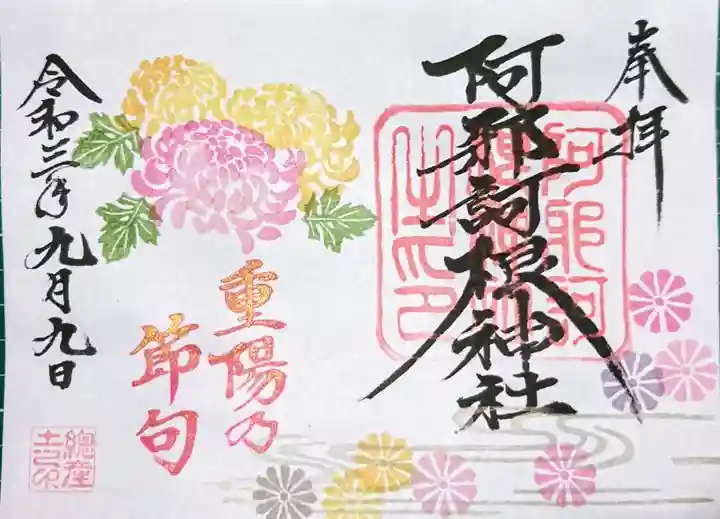 奉拝
阿邪訶根神社
重陽乃
節句
令和三年九月九日